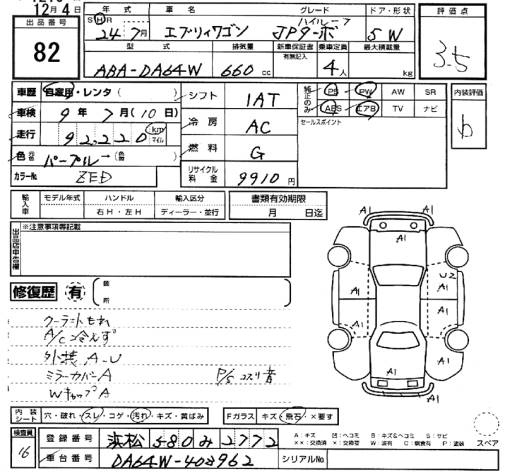 12月4日
出品番号
82
年式 車名 グレード ドア・形状
S H 24年7月 エブリィワゴン JPターボ ハイルーフ 5W
型式 排気量 新車保証書 乗車定員 最大積載量
ABA-DA64W 660cc 有無記入 4人 kg
評価点
3.5
内装評価
b
車歴 自家用・レンタ( )
車検 9年7月(10日)
走行 92,220 km マイル
色 元色 パープル→(色替 )
カラーNo ZED
シフト 1AT
冷房 AC
燃料 G
リサイクル料金 9910円
純正のみ PS PW AW SR
ABS エアB TV ナビ
セールスポイント
輸入車 モデル年式 ハンドル 輸入区分
年 右H・左H ディーラー・並行
書類有効期限
月 日迄
出品店申告欄
※注意事項等記載
修復歴 有 箇所
クーラントもれ
A/C冷えず
外装 A-U
ミラーカバーA P/S コスリ音
WキャップA
A1 A1 A1 A1 A1 U2 A1 A1 A1 A1 A1
内装シート 穴・破れ・スレ・コゲ・汚れ・キズ・黄ばみ
Fガラス キズ・飛石・×要す
検査員 16
登録番号 浜松 580 み 2772
車台番号 DA64W-408962
シリアルNo
スペア